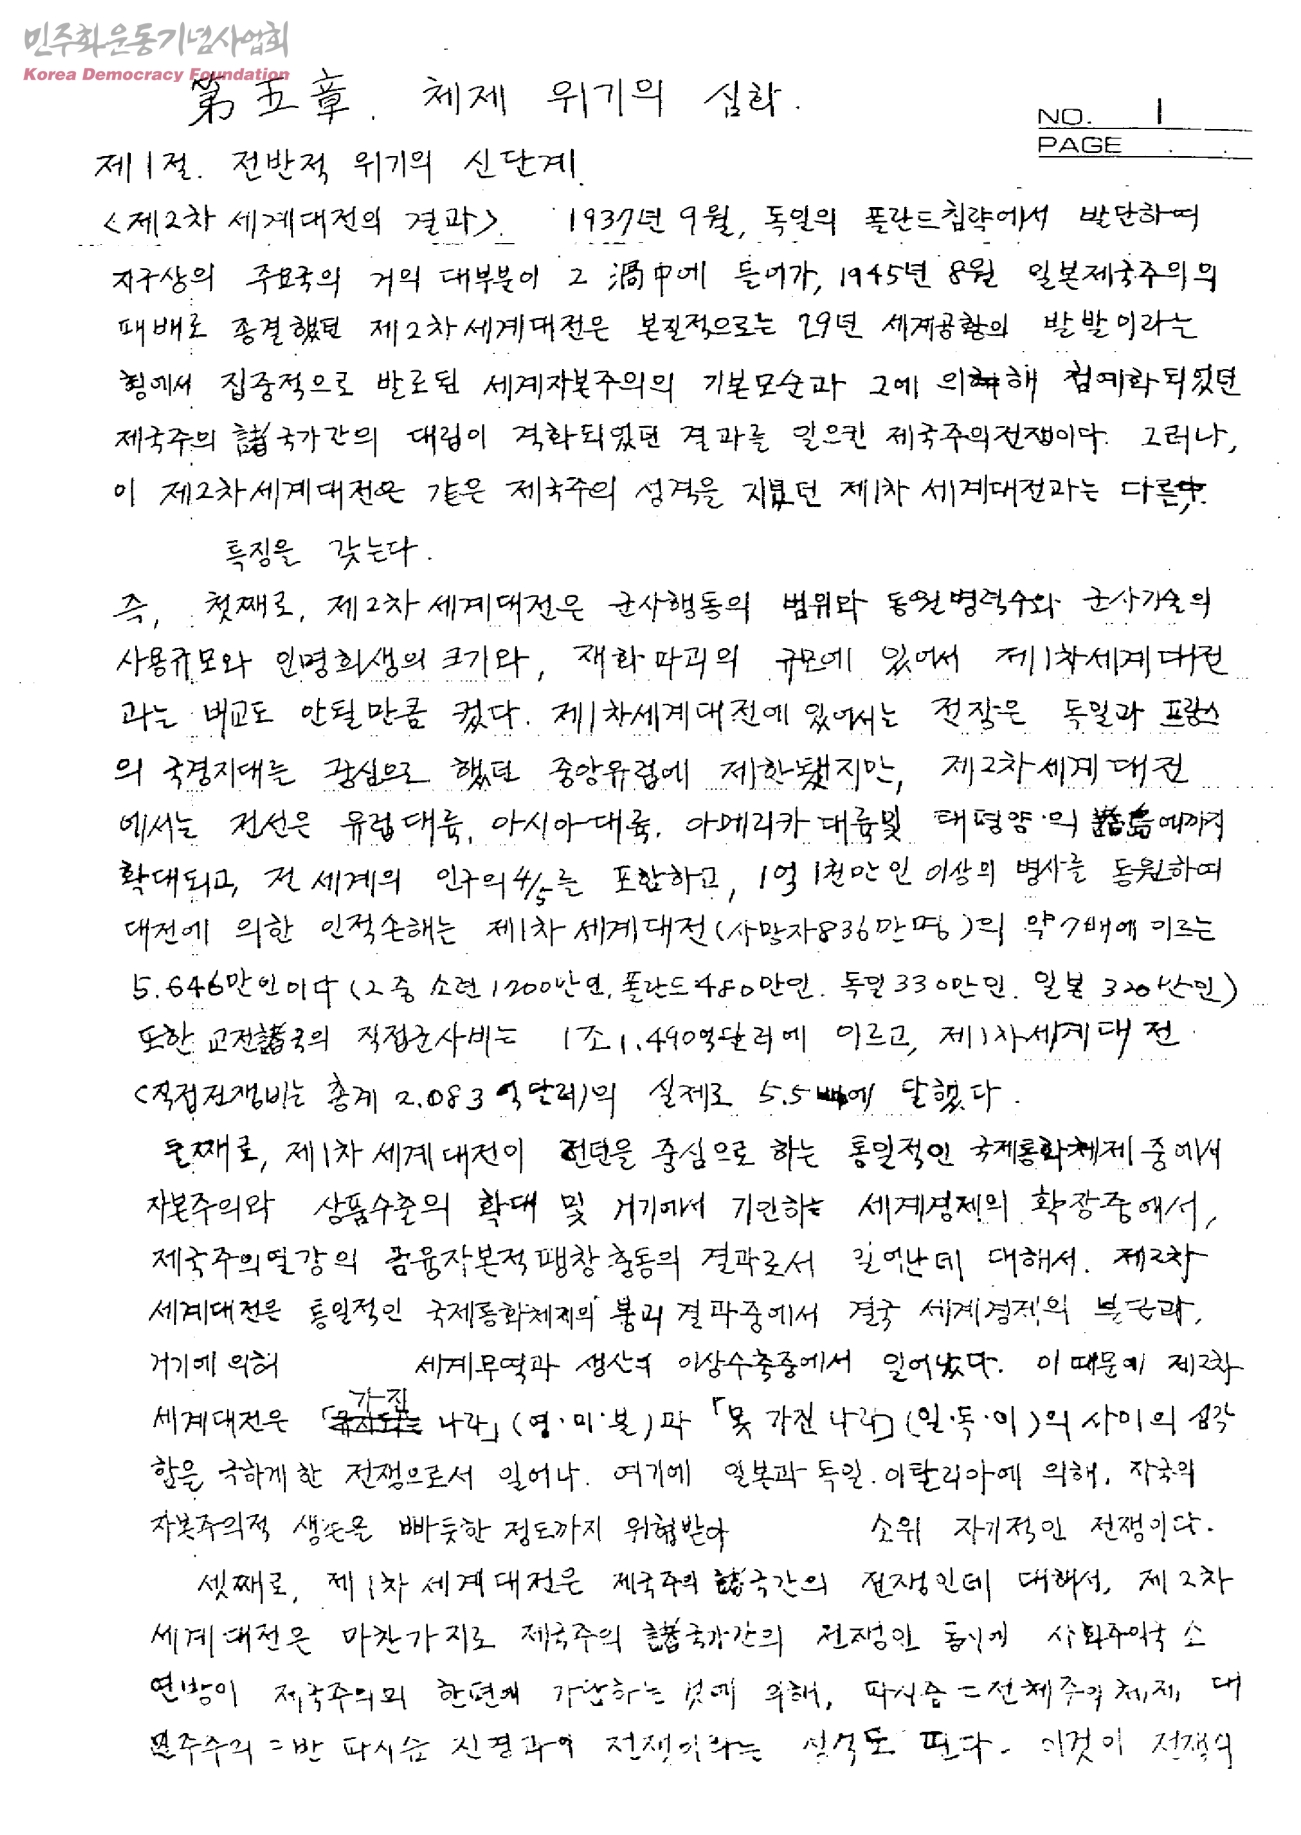 민주화운동기념사업회
Korea Democracy Foundation
第五章. 체제 위기의 심화.
NO. 1
PAGE
제1절. 전반적 위기의 신단계.
<제2차 세계대전의 결과>. 1937년 9월, 독일의 폴란드침략에서 발단하여
지구상의 주요국의 거의 대부분이 그 渦中에 들어가, 1945년 8월 일본제국주의의
패배로 종결했던 제2차세계대전은 본질적으로는 29년 세계공황의 발발이라는
형에서 집중적으로 발로된 세계자본주의의 기본모순과 그에 의해 첨예화되었던
제국주의 諸국가간의 대립이 격화되었던 결과를 일으킨 제국주의전쟁이다. 그러나,
이 제2차세계대전은 같은 제국주의 성격을 지녔던 제1차 세계대전과는 다른
특징을 갖는다.
즉, 첫째로, 제2차 세계대전은 군사행동의 범위와 동원병력수와 군사기술의
사용규모와 인명희생의 크기와, 재화파괴의 규모에 있어서 제1차세계대전
과는 비교도 안될만큼 컸다. 제1차세계대전에 있어서는 전장은 독일과 프랑스
의 국경지대를 중심으로 했던 중앙유럽에 제한됐지만, 제2차세계대전
에서는 전선은 유럽대륙, 아시아대륙, 아메리카 대륙및 태평양의 諸島에까지
확대되고, 전 세계의 인구의 4/5를 포함하고, 1억 1천만인 이상의 병사를 동원하여
대전에 의한 인적손해는 제1차 세계대전(사망자836만명)의 약7배에 이르는
5.646만인이다 (그중 소련1200만인, 폴란드480만인. 독일330만인. 일본 320만인)
또한 교전諸국의 직접군사비는 1조1.490억달러에 이르고, 제1차세계대전
(직접전쟁비는 총계 2.083억달러)의 실제로 5.5배에 달했다.
둘째로, 제1차 세계대전이 런던을 중심으로 하는 통일적인 국제통화체제 중에서
자본주의와 상품수출의 확대 및 거기에서 기인하는 세계경제의 확장중에서,
제국주의열강의 금융자본적팽창충동의 결과로서 일어난데 대해서. 제2차
세계대전은 통일적인 국제통화체제의 붕괴 결과중에서 결국 세계경제의 분단과,
거기에 의해 세계무역과 생산의 이상수축중에서 일어났다. 이 때문에 제2차
세계대전은 「가진 나라」(영·미·불)과 「못 가진 나라」(일·독·이)의 사이의 심각
함을 극하게 한 전쟁으로서 일어나. 여기에 일본과 독일.이탈리아에 의해, 자국의
자본주의적 생존을 빠듯한 정도까지 위협받아 소위 자기적인 전쟁이다.
셋째로, 제1차 세계대전은 제국주의 諸국간의 전쟁인데 대해서, 제2차
세계대전은 마찬가지로 제국주의 諸국가간의 전쟁인 동시에 사회주의국 소
연방이 제국주의의 한편에 가담하는 것에 의해, 파시즘=전체주의 체제 대
민주주의=반 파시즘 전쟁이라는 성격도 띤다. 이것이 전쟁의